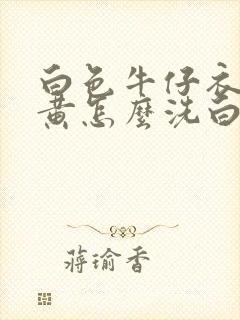 白色牛仔衣
黄怎麼洗白
蒋瑜香